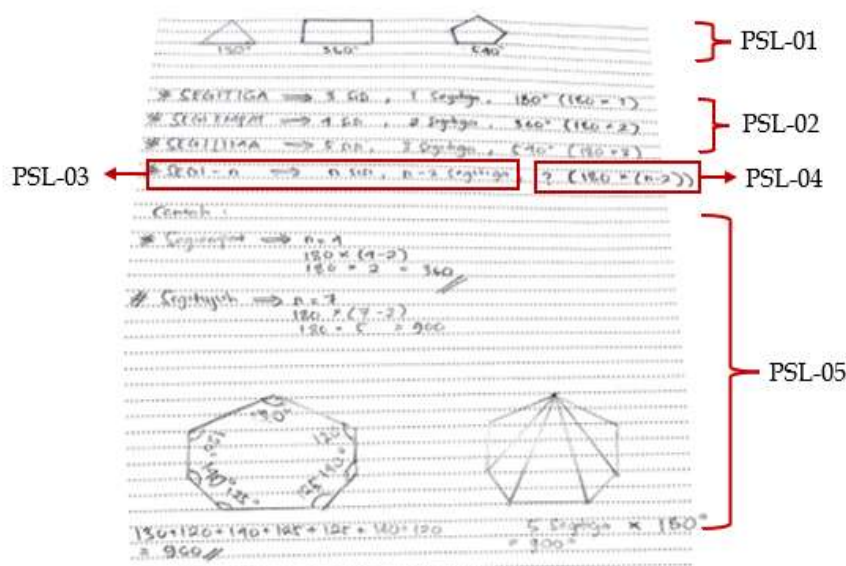 180° 360° 540°
PSL-01
* SEGITIGA ⟹ 3 sisi, 1 segitiga, 180° (180 × 1)
* SEGIEMPAT ⟹ 4 sisi, 2 segitiga, 360° (180 × 2)
PSL-02
* SEGILIMA ⟹ 5 sisi, 3 segitiga, 540° (180 × 3)
PSL-03
* SEGI-n ⟹ n sisi, n-2 segitiga, ? (180 × (n-2))
PSL-04
Contoh :
* Segiempat ⟹ n = 4
180 × (4-2)
180 × 2 = 360 //
# Segitujuh ⟹ n = 7
180 × (7-2)
180 × 5 = 900
PSL-05
120
140°
125°
125
140°
130+120+140+125+125+140+120
= 900 //
5 segitiga × 180°
= 900°